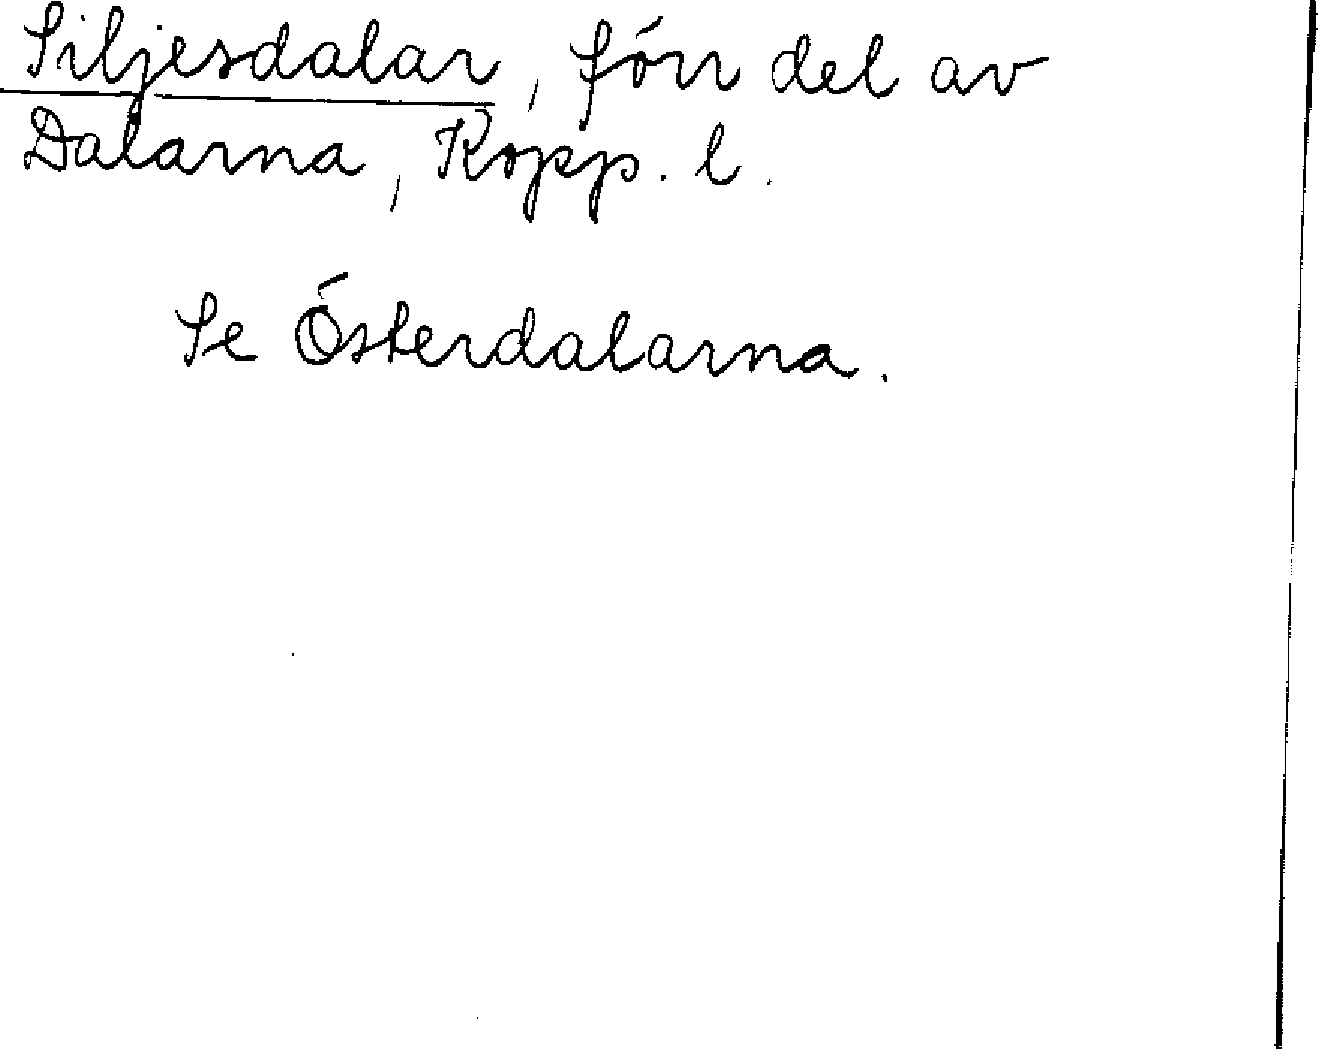 Siljesdalar, förr del av
Dalarna, Kopp. l.
Se Österdalarna.